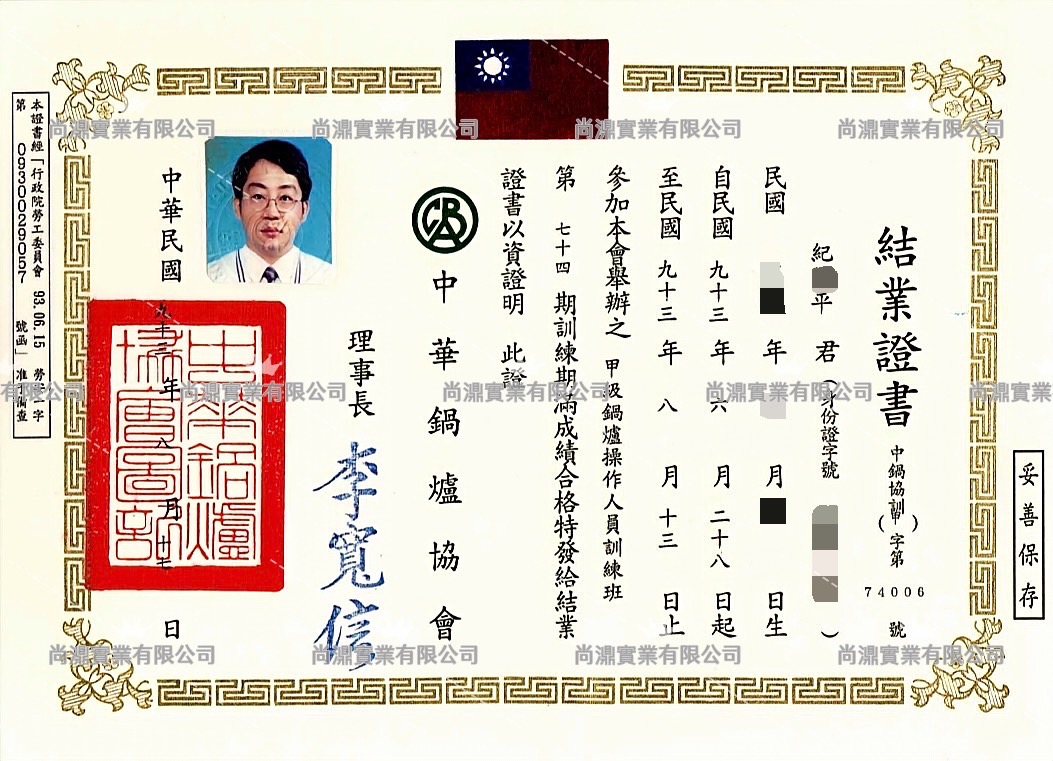 結業證書
中鍋協訓(甲)字第 74006 號
紀 平 君 (身份證字號 )
民國 年 月 日生
自民國 九十三 年 六 月 二十八 日起
至民國 九十三 年 八 月 十三 日止
參加本會舉辦之 甲級鍋爐操作人員訓練班
第 七十四 期訓練期滿成績合格特發給結業
證書以資證明 此證
CBA
中華鍋爐協會
理事長 李寬信
中華民國 九十三 年 八 月 十七 日
中華鍋爐協會圖記
本證書經「行政院勞工委員會 93.06.15 勞 字
第 0930029057 號函」准 備查
妥善保存
尚鼎實業有限公司 尚鼎實業有限公司 尚鼎實業有限公司 尚鼎實業有限公司
尚鼎實業有限公司 尚鼎實業有限公司 尚鼎實業有限公司 尚鼎實業有限公司
尚鼎實業有限公司 尚鼎實業有限公司 尚鼎實業有限公司 尚鼎實業有限公司